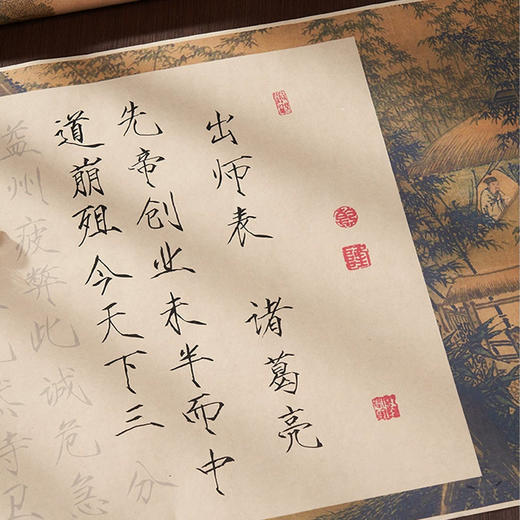 出师表 诸葛亮
先帝创业未半而中
道崩殂今天下三分
益州疲弊此诚危急